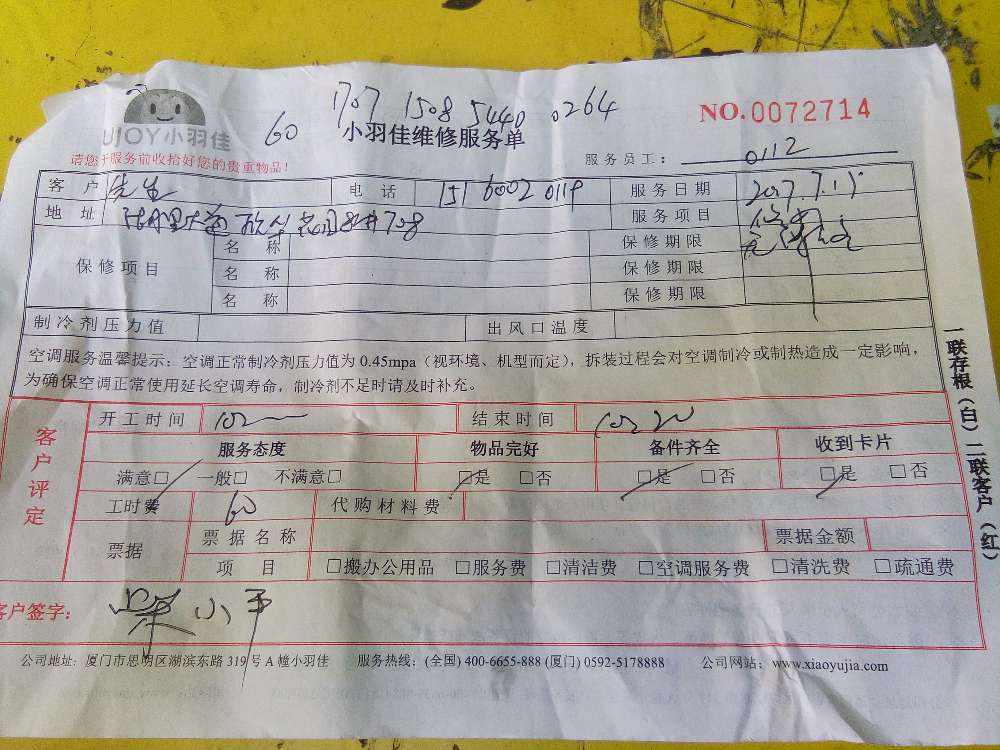 1707 1508 5440 0264
UJOY小羽佳
60
小羽佳维修服务单
NO.0072714
请您于服务前收拾好您的贵重物品!
服务员工: 0112
客户 先生 电话 151 6002 0119 服务日期 2017.7.15
地址 708 服务项目
保修项目
名称 保修期限
名称 保修期限
名称 保修期限
制冷剂压力值 出风口温度
空调服务温馨提示：空调正常制冷剂压力值为 0.45mpa（视环境、机型而定），拆装过程会对空调制冷或制热造成一定影响，
为确保空调正常使用延长空调寿命，制冷剂不足时请及时补充。
一联存根（白）二联客户（红）
客户评定
开工时间 结束时间
服务态度 物品完好 备件齐全 收到卡片
满意□ 一般□ 不满意□ □是 □否 □是 □否 □是 □否
工时费 60 代购材料费
票据 票据名称 票据金额
项目 □搬办公用品 □服务费 □清洁费 □空调服务费 □清洗费 □疏通费
客户签字:
公司地址: 厦门市思明区湖滨东路 319 号 A 幢小羽佳 服务热线: (全国) 400-6655-888 (厦门) 0592-5178888 公司网站: www.xiaoyujia.com